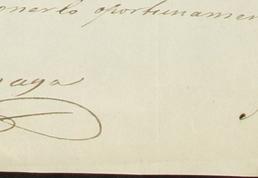 onerlo oportunamen
naga